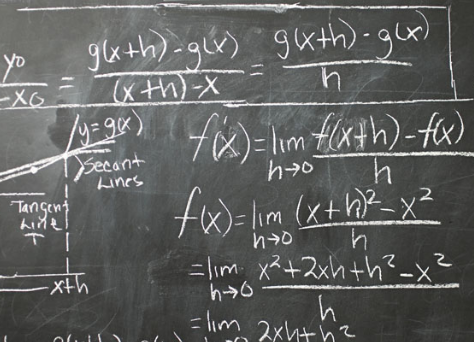 y₀ / -x₀ = (g(x+h) - g(x)) / ((x+h) - x) = (g(x+h) - g(x)) / h
y = g(x)
Secant
Lines
Tangent
Line
T
x+h
f'(x) = lim h→0 (f(x+h) - f(x)) / h
f(x) = lim h→0 ((x+h)² - x²) / h
= lim h→0 (x² + 2xh + h² - x²) / h
= lim 2xh + h²